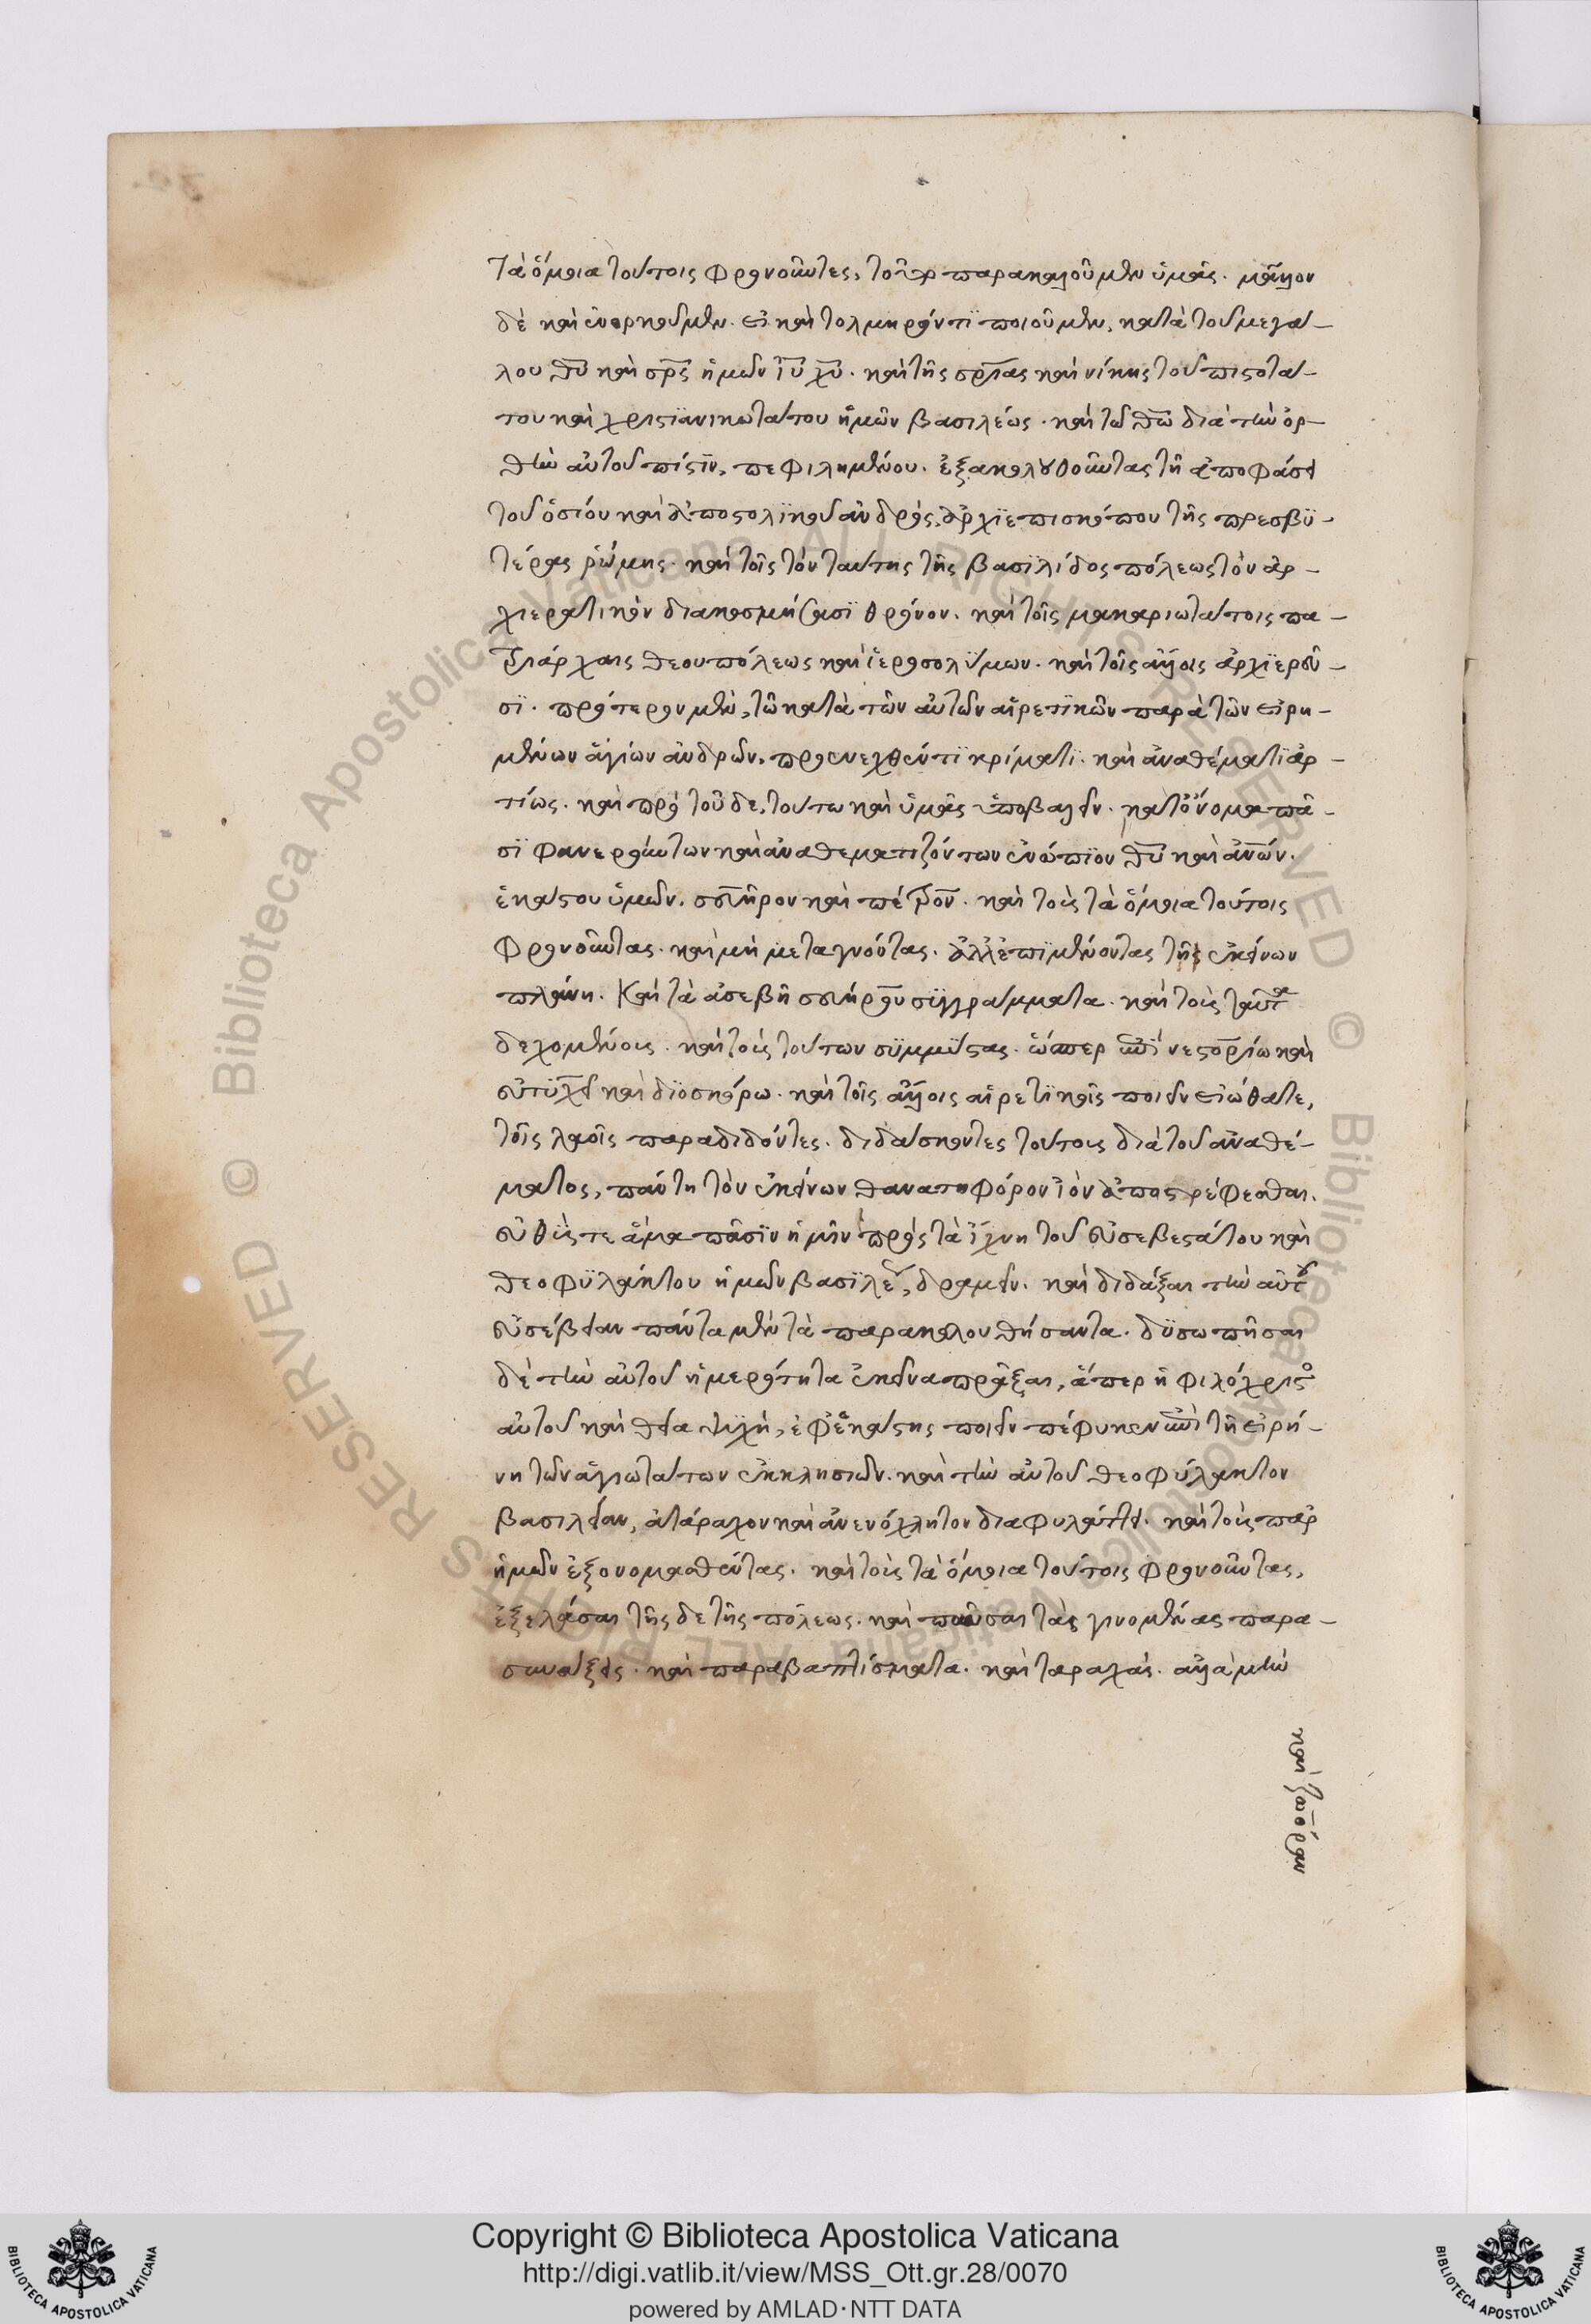 τὰ ὅμοια τούτοις φρονοῦντες, τοῦτο παρακαλοῦμεν ὑμᾶς. μᾶλλον
δὲ καὶ ἐνορκοῦμεν. εἰ καὶ τολμηρόν τϊ ποιοῦμεν, κατὰ τοῦ μεγά-
λου θ̅υ̅ καὶ σ̅ρ̅ς̅ ἡμῶν ι̅υ̅ χ̅υ̅. καὶ τῆς σ̅ρ̅ίας καὶ νίκης τοῦ πιστοτά-
του καὶ χριστϊανικωτάτου ἡμῶν βασιλέως. καὶ τῶ θ̅ω̅ διὰ τὴν ὀρ-
θὴν αὐτοῦ πίστϊν, πεφιλημένου. ἐξακολουθοῦντας τῆ ἀποφάσει
τοῦ ὁσίου καὶ ἀποστολϊκοῦ ἀνδρός, ἀρχϊεπισκόπου τῆς πρεσβϋ-
τέρας ῥώμης. καὶ τοῖς τὸν ταύτης τῆς βασϊλίδος πόλεως τὸν ἀρ-
χιερατικὸν διακοσμήσασϊ θρόνον. καὶ τοῖς μακαριωτάτοις πα-
τριάρχαις θεουπόλεως καὶ ἱεροσολύμων. καὶ τοῖς ἄλλοις ἀρχϊερεῦ-
σϊ. πρότερον μὲν, τῶ κατὰ τῶν αὐτῶν αἱρετϊκῶν παρὰ τῶν εἰρη-
μένων ἁγίων ἀνδρῶν, προσενεχθέντϊ κρίματϊ. καὶ ἀναθέματϊ ἀρ-
τίως. καὶ πρὸ τοῦδε, τούτω καὶ ὑμᾶς ὑποβαλεῖν. κατ' ὄνομα πᾶ-
σϊ φανερούντων καὶ ἀναθεματιζόντων ἐνώπϊον θ̅υ̅ καὶ ἀ̅ν̅ων.
ἑκάστου ὑμῶν. σευῆρον καὶ πέτρον. καὶ τοὺς τὰ ὅμοια τούτοις
φρονοῦντας. καὶ μὴ μεταγνόντας. ἀλλ' ἐπϊμένοντας τῆς ἐκείνων
πλάνη. καὶ τὰ ἀσεβῆ σευήρου σϋγγράμματα. καὶ τοὺς ταῦτα
δεχομένους. καὶ τοὺς τούτων σϋμμύστας. ὥσπερ ἐπὶ νεστορίω καὶ
εὐτϋχεῖ καὶ δϊοσκόρω. καὶ τοῖς ἄλλοις αἱρετϊκοῖς ποιεῖν εἰώθατε,
τοῖς λαοῖς παραδιδόντες. διδάσκοντες τούτους διὰ τοῦ ἀναθέ-
ματος, πάντη τὸν ἐκείνων θανατηφόρον ἰὸν ἀποστρέφεσθαι.
εὐθύς τε ἅμα πᾶσϊν ἡμῖν πρὸς τὰ ἴχνη τοῦ εὐσεβεστάτου καὶ
θεοφϋλάκτου ἡμῶν βασϊλέως, δραμεῖν. καὶ διδάξαι τὴν αὐτοῦ
εὐσέβειαν πάντα μὲν τὰ παρακολουθήσαντα. δϋσωπῆσαι
δὲ τὴν αὐτοῦ ἡμερότητα ἐκεῖνα πρᾶξαι, ἅπερ ἡ φιλόχριστος
αὐτοῦ καὶ θεία ψϋχὴ, ἐφ' ἑκάστης ποιεῖν πέφυκεν ἐπὶ τῆ εἰρή-
νη τῶν ἁγιωτάτων ἐκκλησιῶν. καὶ τὴν αὐτοῦ θεοφύλακτον
βασιλείαν, ἀτάραχον καὶ ἀνενόχλητον διαφυλάττει. καὶ τοὺς παρ'
ἡμῶν ἐξονομασθέντας. καὶ τοὺς τὰ ὅμοια τούτοις φρονοῦντας,
ἐξελάσαι τῆσδε τῆς πόλεως. καὶ παῦσαι τὰς γινομένας παρα-
συνάξεις. καὶ παραβαπτίσματα. καὶ ταραχάς. ἀλλὰ μὴν
καὶ ζωόραν
Copyright © Biblioteca Apostolica Vaticana
http://digi.vatlib.it/view/MSS_Ott.gr.28/0070
powered by AMLAD·NTT DATA